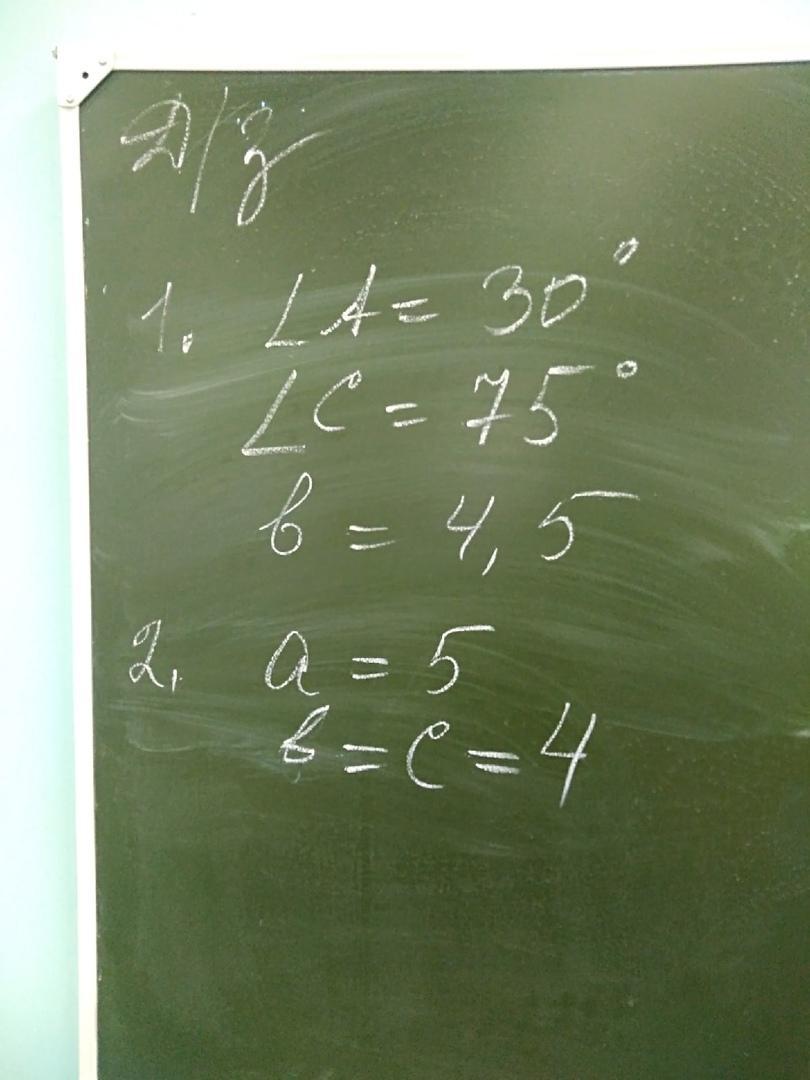 Д/з
1. ∠A = 30°
∠C = 75°
b = 4,5
2. a = 5
b = c = 4